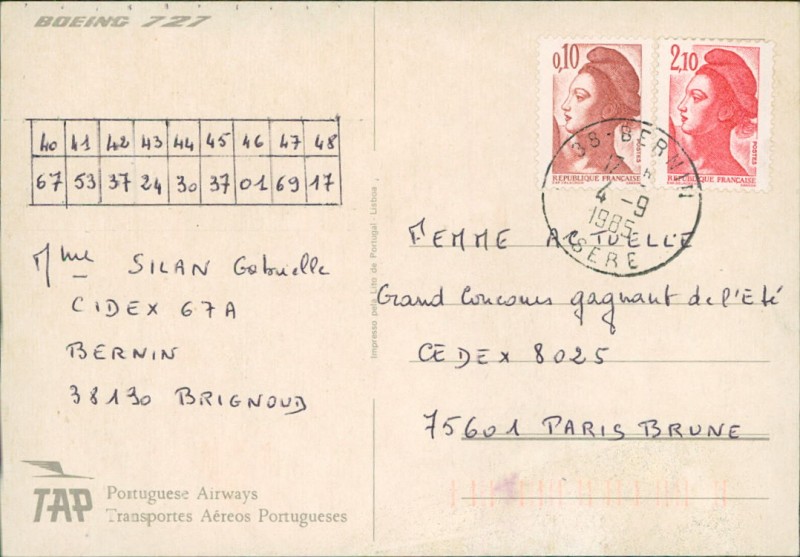 BOEING 727
40 41 42 43 44 45 46 47 48
67 53 37 24 30 37 01 69 17
Mme SILAN Gabrielle
CIDEX 67A
BERNIN
38130 BRIGNOUD
TAP Portuguese Airways
Transportes Aéreos Portugueses
Impresso pela Lito de Portugal - Lisboa
0,10
POSTES
REPUBLIQUE FRANÇAISE
2,10
POSTES
REPUBLIQUE FRANÇAISE
38-BERNIN
4-9
1985
ISERE
FEMME ACTUELLE
Grand Concours gagnant de l'Eté
CEDEX 8025
75601 PARIS BRUNE